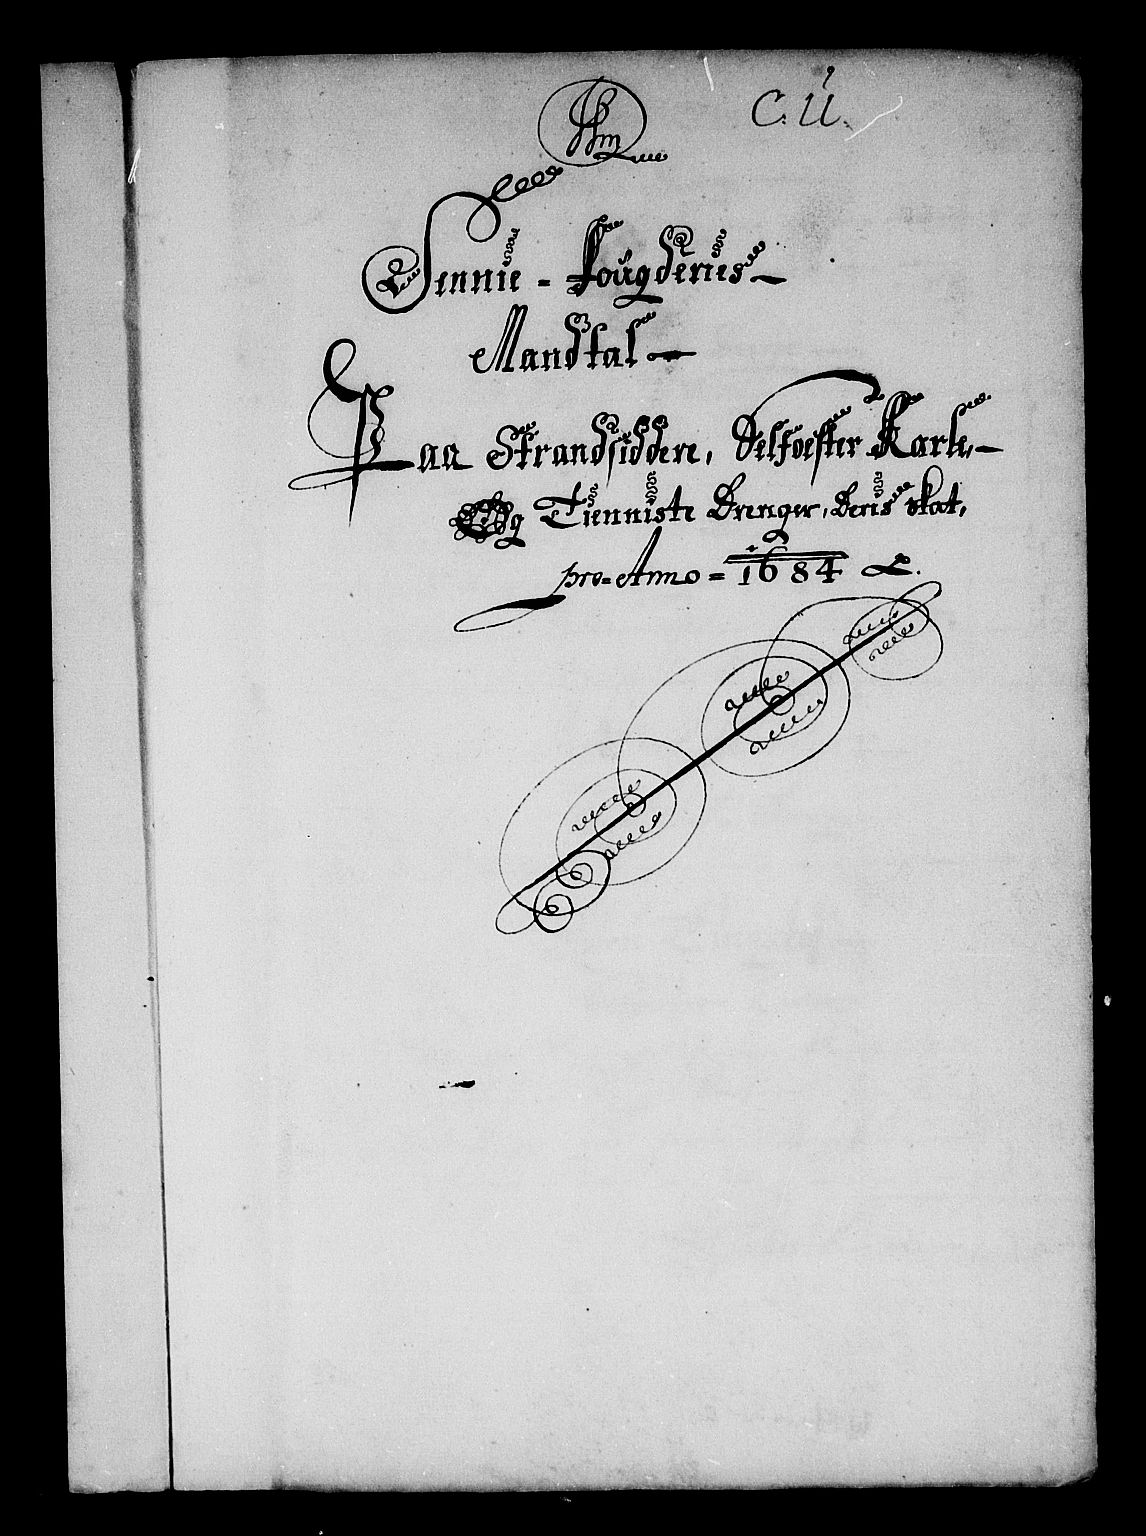 C. ü.
Sennie - Fougderies
Mandtal
Paa Strandsiddere, Selfoester Karle,
Og Tienniste Drenger, deris skat,
pro = Anno = 1684